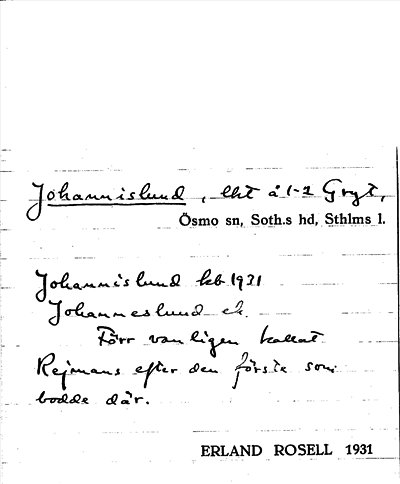 Johannislund, lht å 1-2 Gryt,
Ösmo sn, Soth.s hd, Sthlms l.
Johannislund kb 1921
Johanneslund ek.
Förr vanligen kallat
Rejmans efter den förste som
bodde där.
ERLAND ROSELL 1931